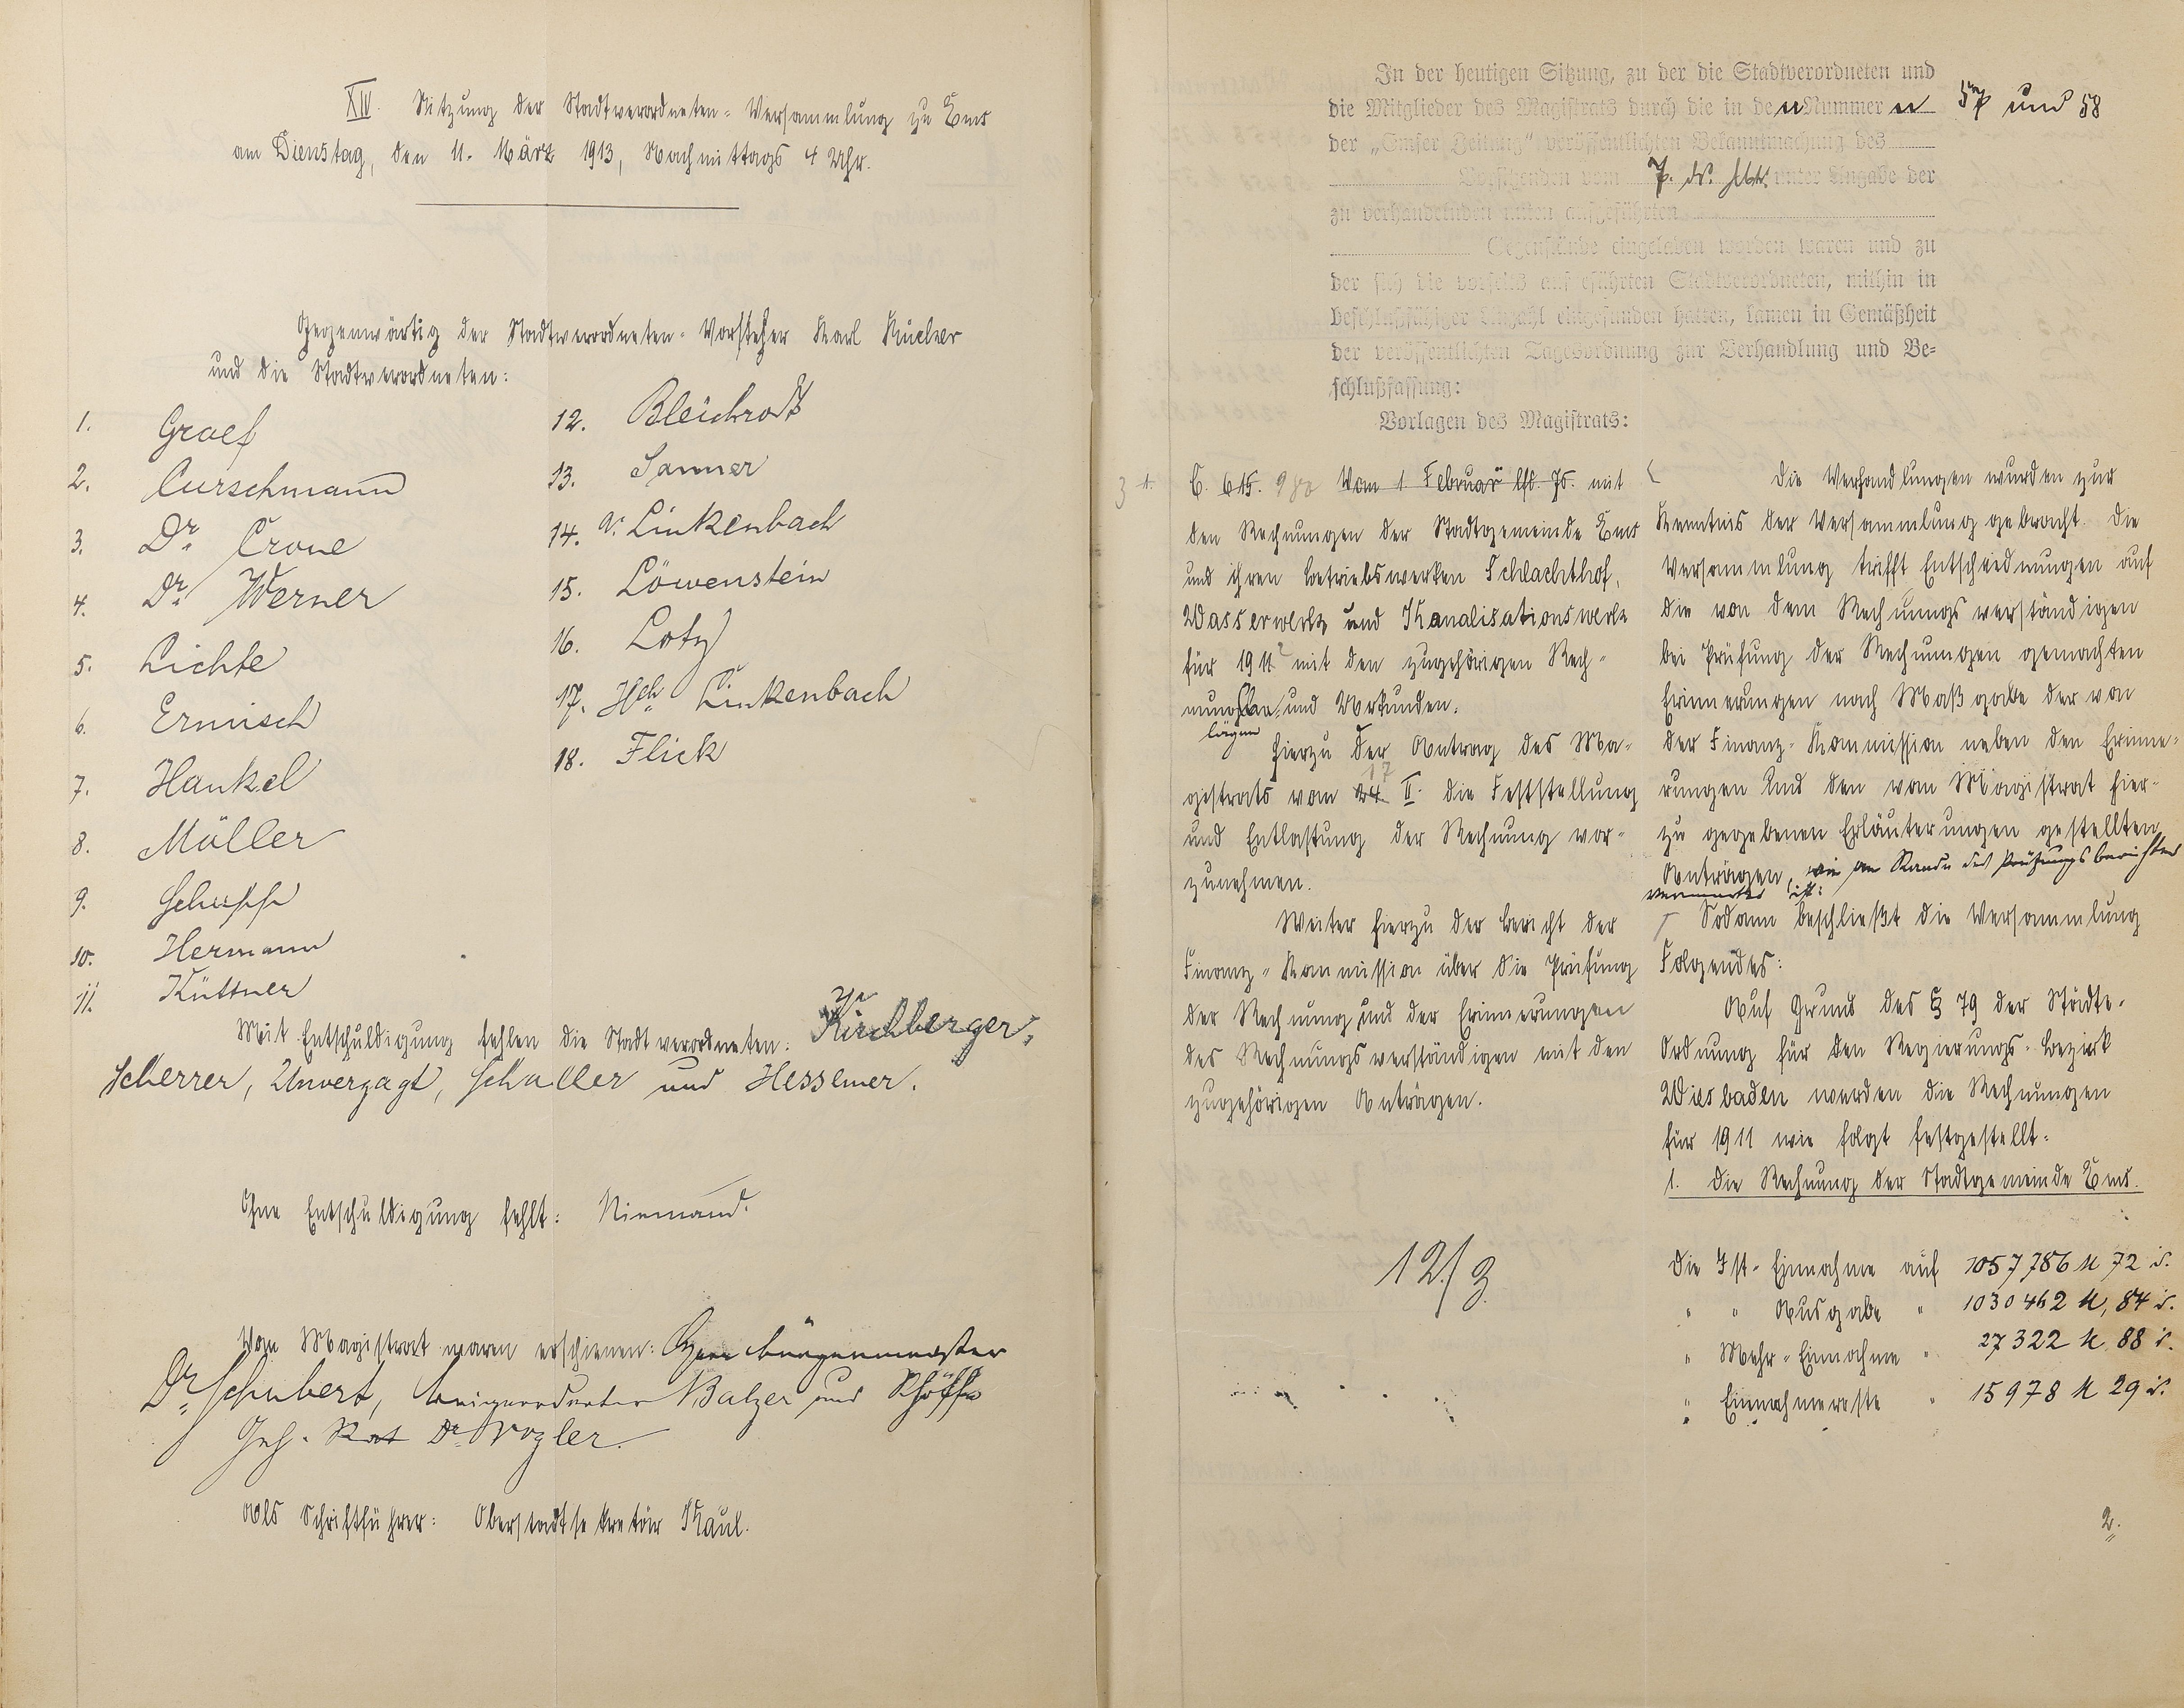 XIV. Sitzung der Stadtverordneten-Versammlung zu Ems
am Dienstag, den 11. März 1913, Nachmittags 4 Uhr.
Gegenwärtig der Stadtverordneten-Vorsteher Karl Rücker
und die Stadtverordneten:
1. Graef
2. Curschmann
3. Dr. Crone
4. Dr. Werner
5. Lichte
6. Ermisch
7. Hankel
8. Müller
9. Schupp
10. Hermann
11. Küttner
12. Bleichrodt
13. Sanner
14. Linkenbach
15. Löwenstein
16. Loty
17. Hch. Linkenbach
18. Flick
Mit Entschuldigung fehlen die Stadtverordneten: Kirchberger,
Scherrer, Unverzagt, Schaller und Hessemer.
Ohne Entschuldigung fehlt: Niemand.
Vom Magistrat waren erschienen: Herr Bürgermeister
Dr. Schubert, Beigeordneter Balzer und Schöffe
Geh. Rat Dr. Vogler.
Als Schriftführer: Oberstadtsekretär Kaul.
In der heutigen Sitzung, zu der die Stadtverordneten und
die Mitglieder des Magistrats durch die in den Nummern 57 und 58
der „Emser Zeitung“ veröffentlichten Bekanntmachung des
Vorsitzenden vom 7. ds. Mts. unter Angabe der
zu verhandelnden unten aufgeführten
Gegenstände eingeladen worden waren und zu
der sich die vorseits aufgeführten Stadtverordneten, mithin in
beschlußfähiger Anzahl eingefunden hatten, kamen in Gemäßheit
der veröffentlichten Tagesordnung zur Verhandlung und Be-
schlußfassung:
Vorlagen des Magistrats:
1. C. 615. Vom 1 Februar lfd. Js. mit
den Rechnungen der Stadtgemeinde Ems
und ihren Betriebswerken Schlachthof,
Wasserwerk und Kanalisationswerk
für 1911 mit den zugehörigen Rech-
nungsbe- und Urkunden.
lägen
Hierzu der Antrag des Ma-
gistrats vom 24. 17 II. die Feststellung
und Entlastung der Rechnung vor-
zunehmen.
Weiter hierzu der Bericht der
Finanz-Kommission über die Prüfung
der Rechnung und der Erinnerungen
des Rechnungsverständigen mit den
zugehörigen Anträgen.
12/3
Die Verhandlungen wurden zur
Kenntnis der Versammlung gebracht. Die
Versammlung trifft Entscheidnungen auf
die von dem Rechnungsverständigen
bei Prüfung der Rechnungen gemachten
Erinnerungen nach Maßgabe der von
der Finanz-Kommission neben den Erinne-
rungen und den vom Magistrat hier-
zu gegebenen Erläuterungen gestellten
Anträgen, wie am Rande des Prüfungsberichtes
vermerkt ist:
Sodann beschließt die Versammlung
Folgendes:
Auf Grund des § 79 der Städte-
Ordnung für den Regierungs-Bezirk
Wiesbaden werden die Rechnungen
für 1911 wie folgt festgestellt:
1. Die Rechnung der Stadtgemeinde Ems.
Die Ist-Einnahme auf 1057786 M 72 ₰.
" " Ausgabe " 1030462 M, 84 ₰.
" Mehr-Einnahme " 27322 M 88 ₰.
" Einnahmereste " 15978 M 29 ₰.
2.